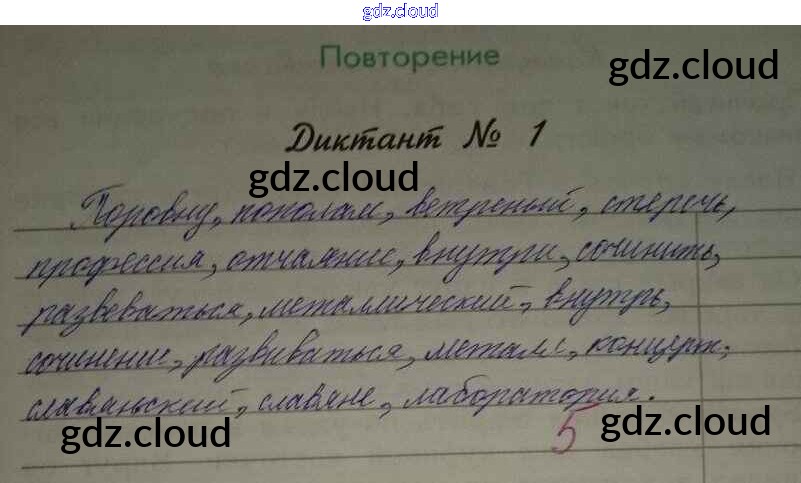 gdz.cloud
Повторение
gdz.cloud
Диктант № 1
gdz.cloud
Поровну, пополам, ветреный, стеречь,
профессия, отчаяние, внутри, сочинить,
развеваться, металлический, внутрь,
сочинение, развиваться, металл, концерт,
славянский, славяне, лаборатория.
5
gdz.cloud
gdz.cloud